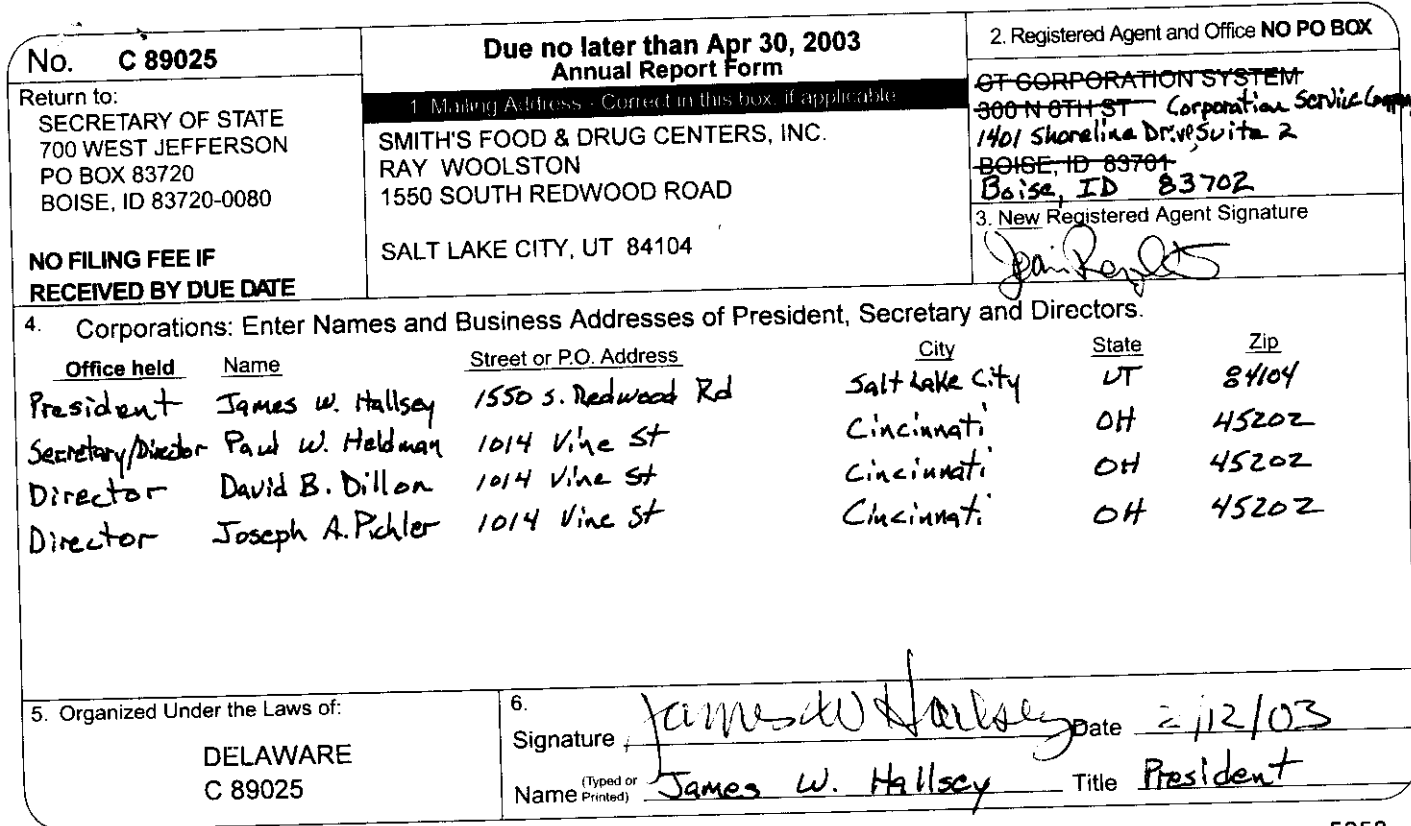 No. C 89025
Return to:
SECRETARY OF STATE
700 WEST JEFFERSON
PO BOX 83720
BOISE, ID 83720-0080
NO FILING FEE IF
RECEIVED BY DUE DATE
Due no later than Apr 30, 2003
Annual Report Form
1. Mailing Address - Correct in this box, if applicable
SMITH'S FOOD & DRUG CENTERS, INC.
RAY WOOLSTON
1550 SOUTH REDWOOD ROAD
SALT LAKE CITY, UT 84104
2. Registered Agent and Office NO PO BOX
CT CORPORATION SYSTEM
300 N 6TH ST Corporation Service Company
1401 Shoreline Drive Suite 2
BOISE, ID 83701
Boise, ID 83702
3. New Registered Agent Signature
4. Corporations: Enter Names and Business Addresses of President, Secretary and Directors.
Office held Name Street or P.O. Address City State Zip
President James W. Hallsey 1550 S. Redwood Rd Salt Lake City UT 84104
Secretary/Director Paul W. Heldman 1014 Vine St Cincinnati OH 45202
Director David B. Dillon 1014 Vine St Cincinnati OH 45202
Director Joseph A. Pichler 1014 Vine St Cincinnati OH 45202
5. Organized Under the Laws of:
DELAWARE
C 89025
6.
Signature James W Hallsey Date 2/12/03
Name (Typed or Printed) James W. Hallsey Title President